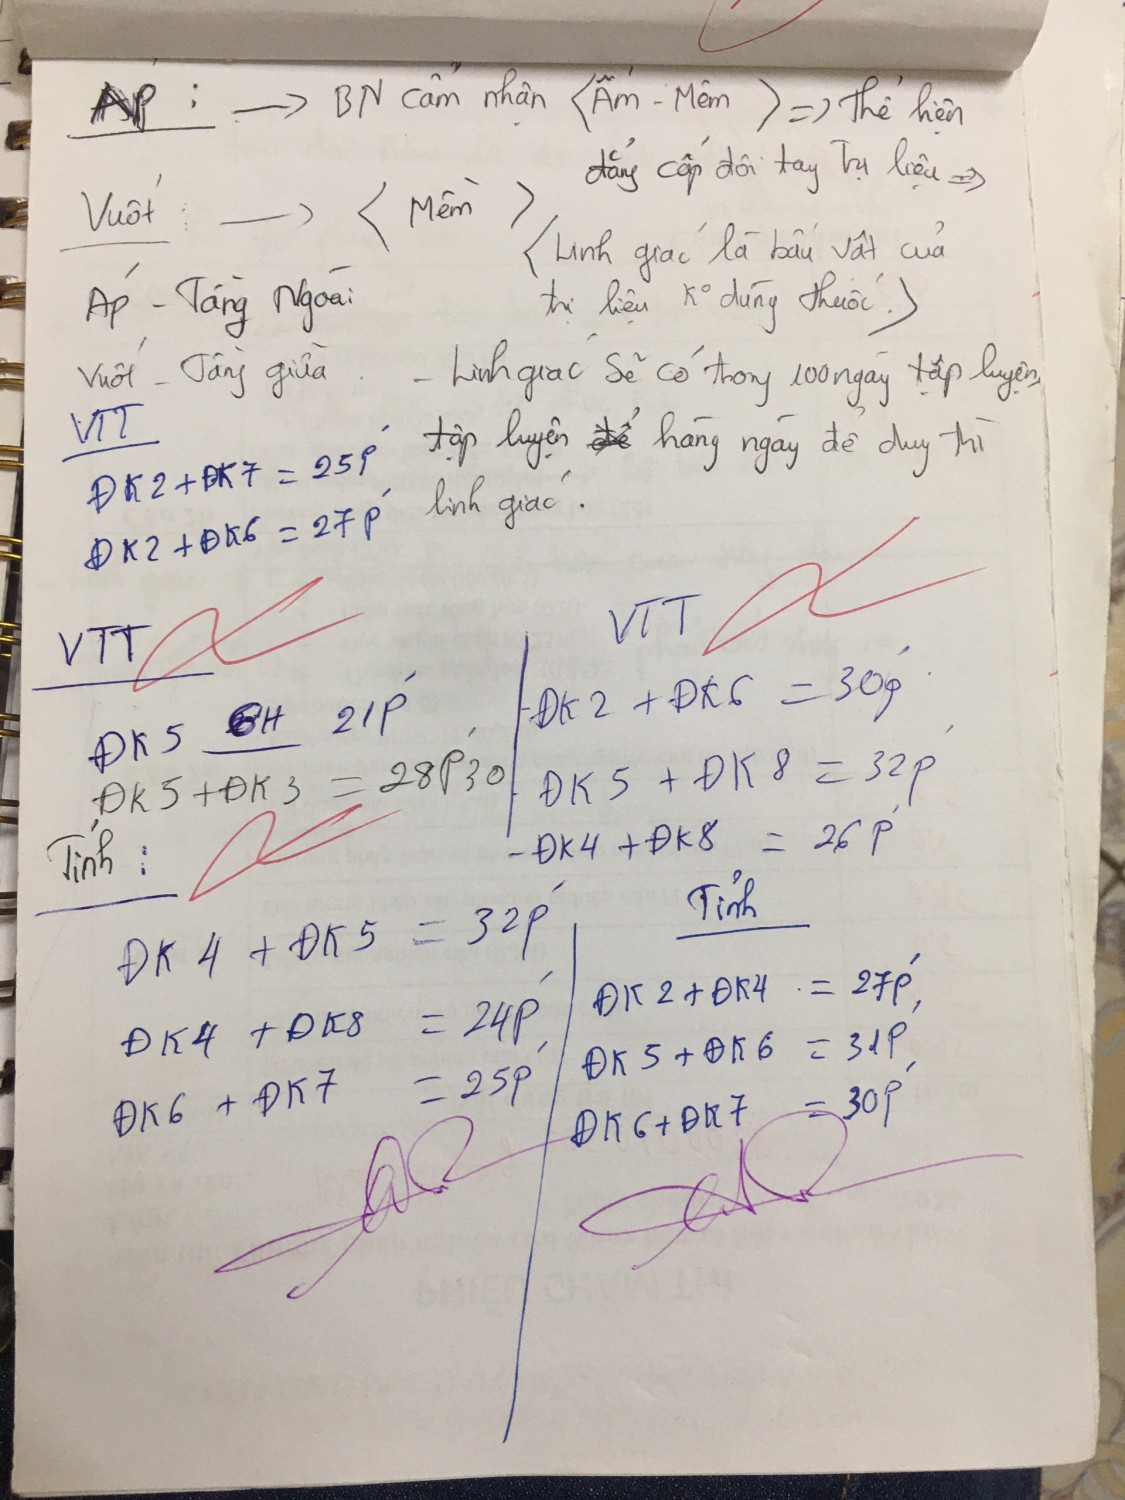 ÁP : → BN cảm nhận < Ấm - Mềm > => thể hiện
đẳng cấp đôi tay Trị liệu =>
Vuốt : → < Mềm >
< Linh giác là báu vật của
trị liệu k° dùng thuốc. >
Áp - Tầng Ngoài
Vuốt - Tầng giữa
- Linh giác sẽ có trong 100 ngày tập luyện,
tập luyện hàng ngày để duy trì
linh giác.
VTT
ĐK2 + ĐK7 = 25P'
ĐK2 + ĐK6 = 27P'
VTT
ĐK5 21P'
ĐK5 + ĐK3 = 28P'30
Tính :
ĐK4 + ĐK5 = 32P'
ĐK4 + ĐK8 = 24P'
ĐK6 + ĐK7 = 25P'
VTT
- ĐK2 + ĐK6 = 30P'
- ĐK5 + ĐK8 = 32P'
- ĐK4 + ĐK8 = 26P'
Tỉnh
ĐK2 + ĐK4 = 27P'
ĐK5 + ĐK6 = 31P'
ĐK6 + ĐK7 = 30P'